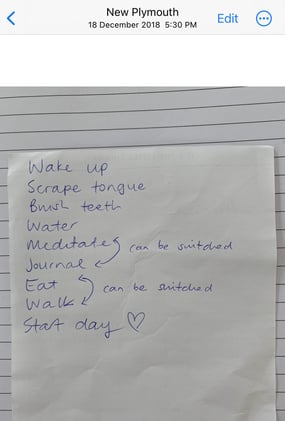 New Plymouth
18 December 2018 5:30 PM
Edit
Wake up
Scrape tongue
Brush teeth
Water
Meditate can be switched
Journal
Eat can be switched
Walk
Start day ♡